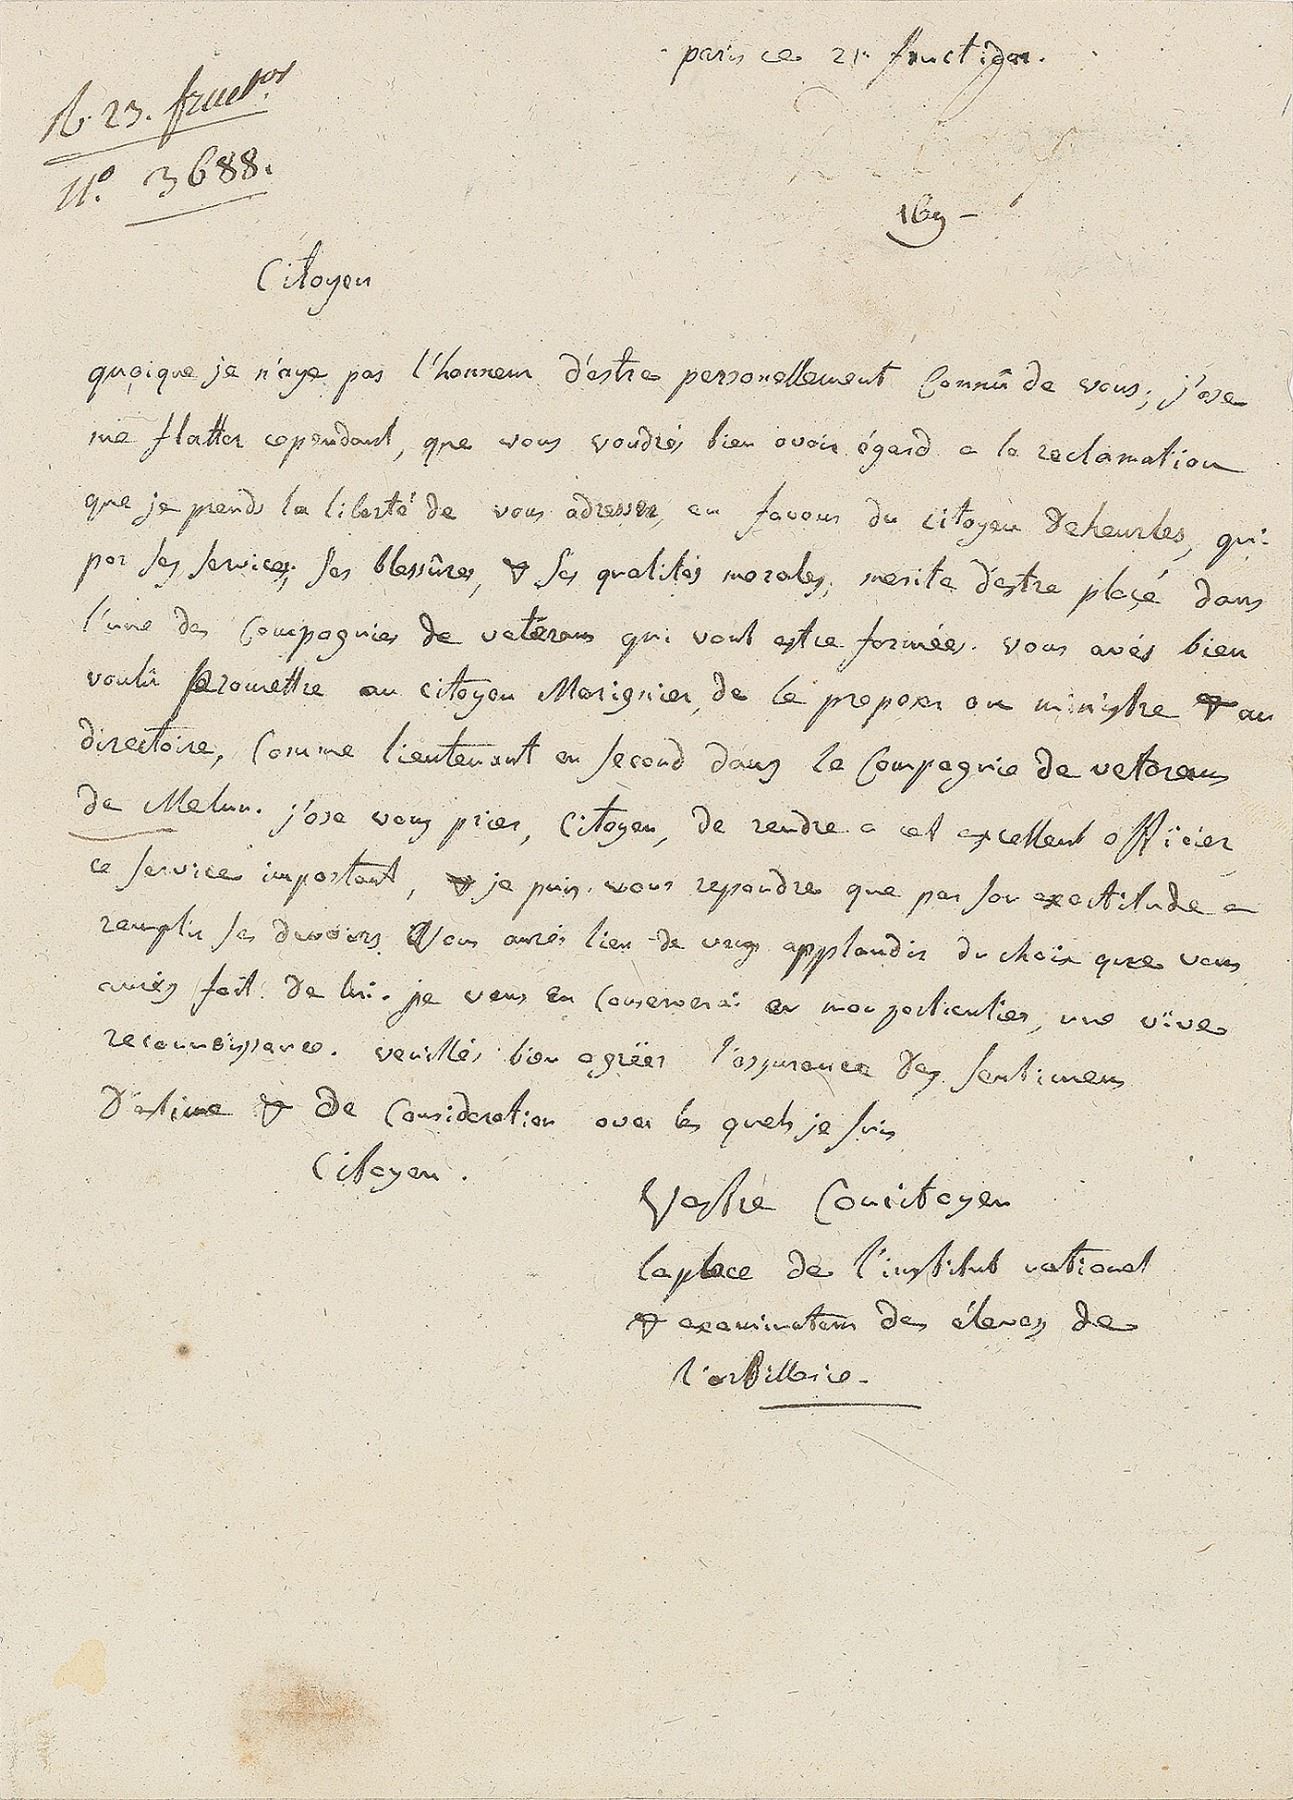 paris ce 21 fructidor.
R. 23. fructor
N.° 3688.
169 -
Citoyen
quoique je n'aye pas l'honneur d'estre personellement connû de vous; j'ose
me flatter cependant, que vous voudrés bien avoir égard a la reclamation
que je prends la liberté de vous adresser, en faveur du citoyen Deheurles, qui
par ses services, ses blessûres, & ses qualités morales, merite d'estre plaçé dans
l'une des Compagnies de vetérans qui vont estre formées. vous avés bien
voulû promettre au citoyen Marignier, de le proposer au ministre & au
directoire, comme lieutenant en second dans la Compagnie de veterans
de Melun. j'ose vous prier, Citoyen, de rendre a cet excellent officier
ce service important, & je puis vous repondre que par son exactitude a
remplir ses devoirs Vous aurés lieu de vous applaudir du choix que vous
aurés fait de lui. je vous en conserverai en mon particulier, une vïve
reconnoissance. veuillés bien agrëer l'assurance des sentimens
d'estime & de Consideration avec les quels je suis
Citoyen.
Vostre Concitoyen
laplace de l'institut national
& examinateur des éleves de
l'artillerie.